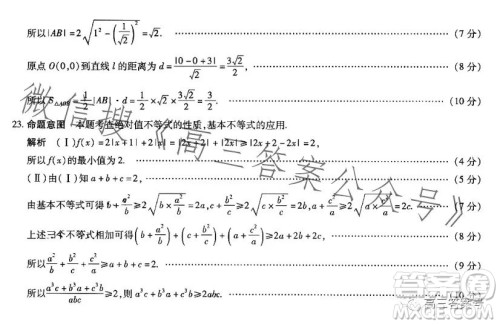 所以|AB|=2√(1²-(1/√2)²)=√2. (7分)
原点O(0,0)到直线l的距离为d=|0-0+3|/√2=3√2/2, (8分)
所以S△ABO=1/2|AB|·d=1/2×√2×3√2/2=3/2. (10分)
23.命题意图 本题考查绝对值不等式的性质,基本不等式的应用.
解析 (Ⅰ)f(x)=2|x+1|+|2x|=|2x+2|+|2x|≥|2x+2-2x|=2,
所以f(x)的最小值为2. (4分)
(Ⅱ)由(Ⅰ)知a+b+c=2, (5分)
由基本不等式可得b+a²/b≥2√(b×a²/b)=2a,c+b²/c≥2√(c×b²/c)=2b,a+c²/a≥2√(a×c²/a)=2c. (7分)
上述三个不等式相加可得(b+a²/b)+(c+b²/c)+(a+c²/a)≥2a+2b+2c, (8分)
所以a²/b+b²/c+c²/a≥a+b+c=2. (9分)
所以(a³c+b³a+c³b)/abc≥2,则a³c+b³a+c³b≥2abc. (10分)
微信搜《高三答案公众号》